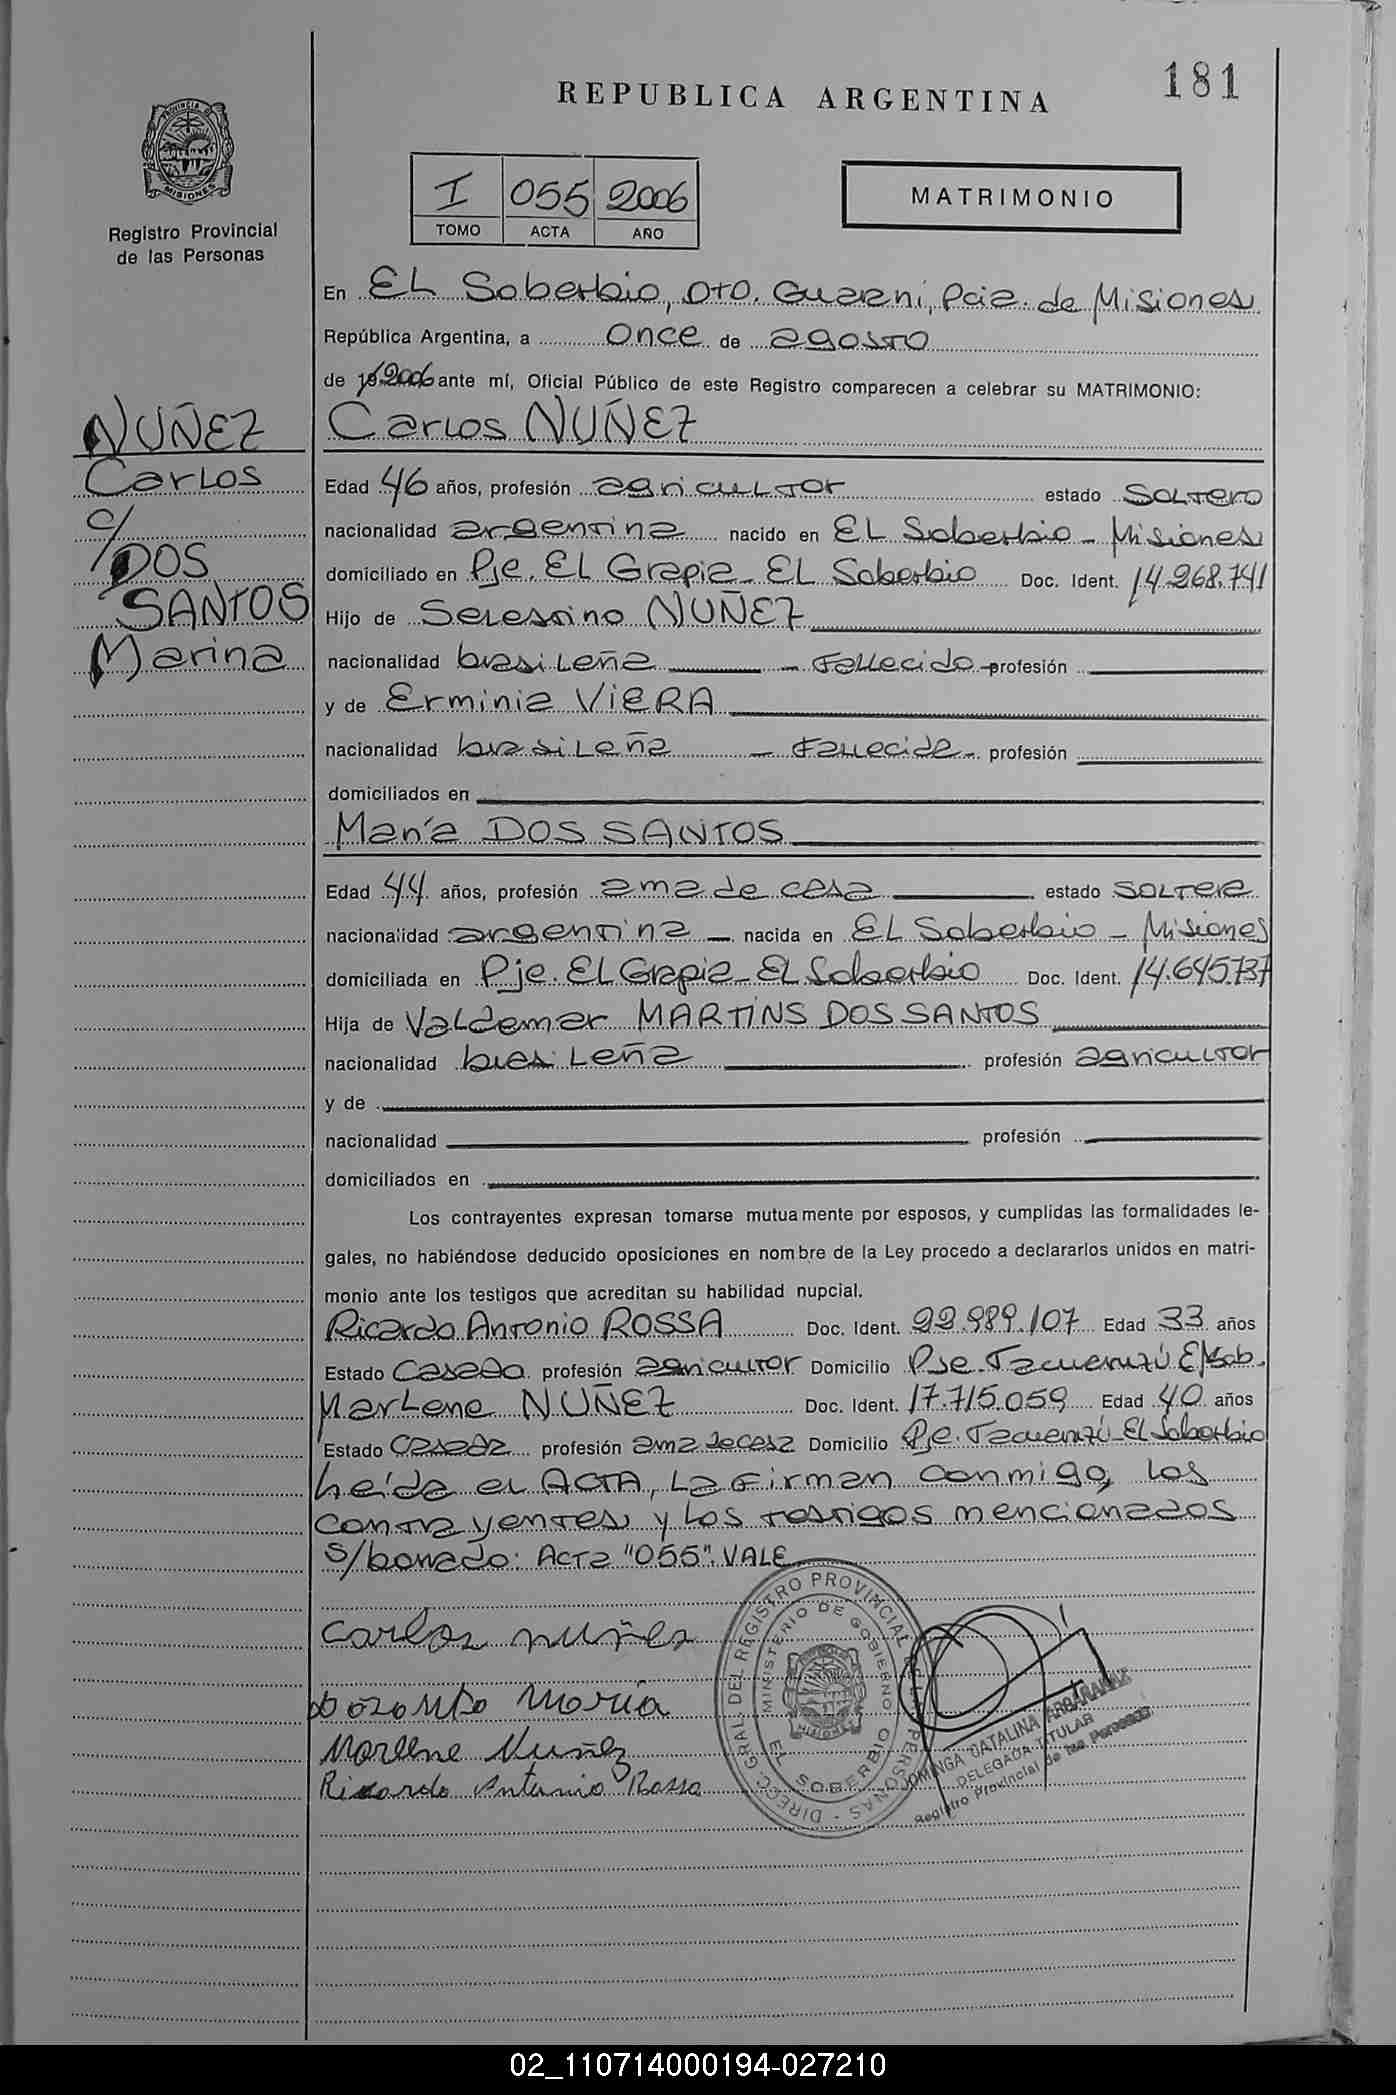 181
REPUBLICA ARGENTINA
PROVINCIA DE
MISIONES
Registro Provincial
de las Personas
I 055 2006
TOMO ACTA AÑO
MATRIMONIO
En EL Soberbio, Dto. Guarní, Pcia. de Misiones
República Argentina, a once de agosto
de 19 2006 ante mí, Oficial Público de este Registro comparecen a celebrar su MATRIMONIO:
NUÑEZ
Carlos
c/
DOS
SANTOS
Marina
Carlos NUÑEZ
Edad 46 años, profesión agricultor estado soltero
nacionalidad argentina nacido en EL Soberbio - Misiones
domiciliado en Pje. EL Grapia - EL Soberbio Doc. Ident. 14.268.741
Hijo de Selessino NUÑEZ
nacionalidad brasileña - fallecido - profesión
y de Erminia VIERA
nacionalidad brasileña - fallecida - profesión
domiciliados en
María DOS SANTOS
Edad 44 años, profesión ama de casa estado soltera
nacionalidad argentina - nacida en EL Soberbio - Misiones
domiciliada en Pje. EL Grapia - EL Soberbio Doc. Ident. 14.645.737
Hija de Valdemar MARTINS DOS SANTOS
nacionalidad brasileña profesión agricultor
y de
nacionalidad profesión
domiciliados en
Los contrayentes expresan tomarse mutuamente por esposos, y cumplidas las formalidades le-
gales, no habiéndose deducido oposiciones en nombre de la Ley procedo a declararlos unidos en matri-
monio ante los testigos que acreditan su habilidad nupcial.
Ricardo Antonio ROSSA Doc. Ident. 22.989.107 Edad 33 años
Estado Casado profesión agricultor Domicilio Pje. Tacuaruzú El Sob.
Marlene NUÑEZ Doc. Ident. 17.715.059 Edad 40 años
Estado Casada profesión ama de casa Domicilio Pje. Tacuaruzú - El Soberbio
Leída el ACTA, La firman conmigo, los
contrayentes y los testigos mencionados
s/borrado: Acta "055". VALE
Carlos nuñes
María
Marlene Nuñez
Ricardo Antonio Rossa
DIRECC. GRAL. DEL REGISTRO PROVINCIAL DE LAS PERSONAS
MINISTERIO DE GOBIERNO
MISIONES
EL SOBERBIO
DOMINGA CATALINA
DELEGADA TITULAR
Registro Provincial de las Personas
02_110714000194-027210